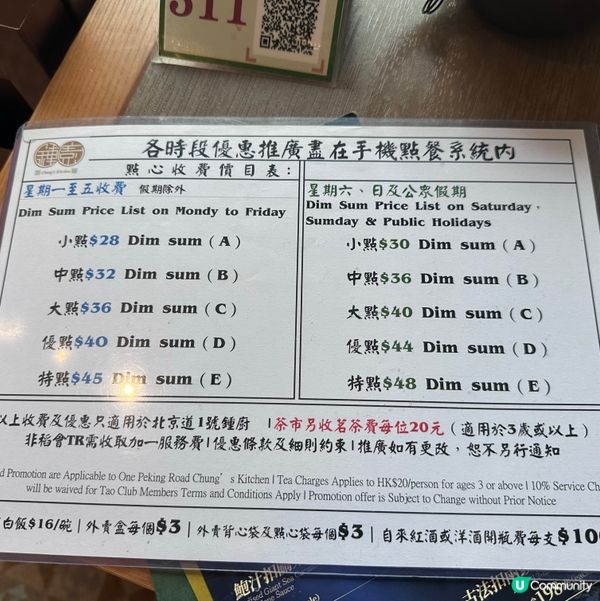 311
鍾亮
Chung's Kitchen
各時段優惠推廣盡在手機點餐系統內
點心收費價目表：
星期一至五收費 假期除外
Dim Sum Price List on Monday to Friday
小點$28 Dim sum (A)
中點$32 Dim sum (B)
大點$36 Dim sum (C)
優點$40 Dim sum (D)
特點$45 Dim sum (E)
星期六、日及公眾假期
Dim Sum Price List on Saturday,
Sumday & Public Holidays
小點$30 Dim sum (A)
中點$36 Dim sum (B)
大點$40 Dim sum (C)
優點$44 Dim sum (D)
特點$48 Dim sum (E)
以上收費及優惠只適用於北京道1號鍾廚 |茶市另收茗茶費每位20元（適用於3歲或以上）
非稻會TR需收取加一服務費|優惠條款及細則約束|推廣如有更改，恕不另行通知
d Promotion are Applicable to One Peking Road Chung's Kitchen | Tea Charges Applies to HK$20/person for ages 3 or above | 10% Service Ch
will be waived for Tao Club Members Terms and Conditions Apply | Promotion offer is Subject to Change without Prior Notice
白飯$16/碗 | 外賣盒每個$3 | 外賣背心袋及點心袋每個$3 | 自來紅酒或洋酒開瓶費每支$100
鮑汁扣
Sauce
古法扣
198
U Community